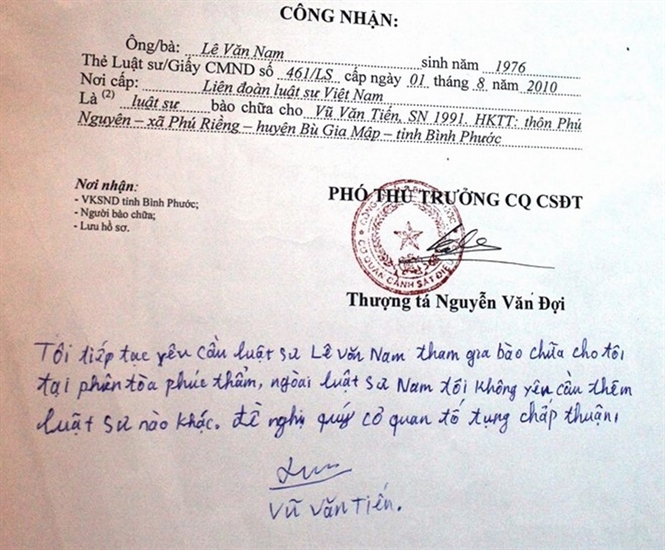 CÔNG NHẬN:
Ông/bà: Lê Văn Nam sinh năm 1976
Thẻ Luật sư/Giấy CMND số 461/LS cấp ngày 01 tháng 8 năm 2010
Nơi cấp: Liên đoàn luật sư Việt Nam
Là (2) luật sư bào chữa cho Vũ Văn Tiến, SN 1991. HKTT: thôn Phú
Nguyên – xã Phú Riềng – huyện Bù Gia Mập – tỉnh Bình Phước
Nơi nhận:
- VKSND tỉnh Bình Phước;
- Người bào chữa;
- Lưu hồ sơ.
PHÓ THỦ TRƯỞNG CQ CSĐT
CƠ QUAN CẢNH SÁT ĐIỀU
Thượng tá Nguyễn Văn Đợi
Tôi tiếp tục yêu cầu luật sư Lê Văn Nam tham gia bào chữa cho tôi
tại phiên tòa phúc thẩm, ngoài luật sư Nam tôi không yêu cầu thêm
luật sư nào khác. đề nghị quý cơ quan tố tụng chấp thuận,
Vũ Văn Tiến.